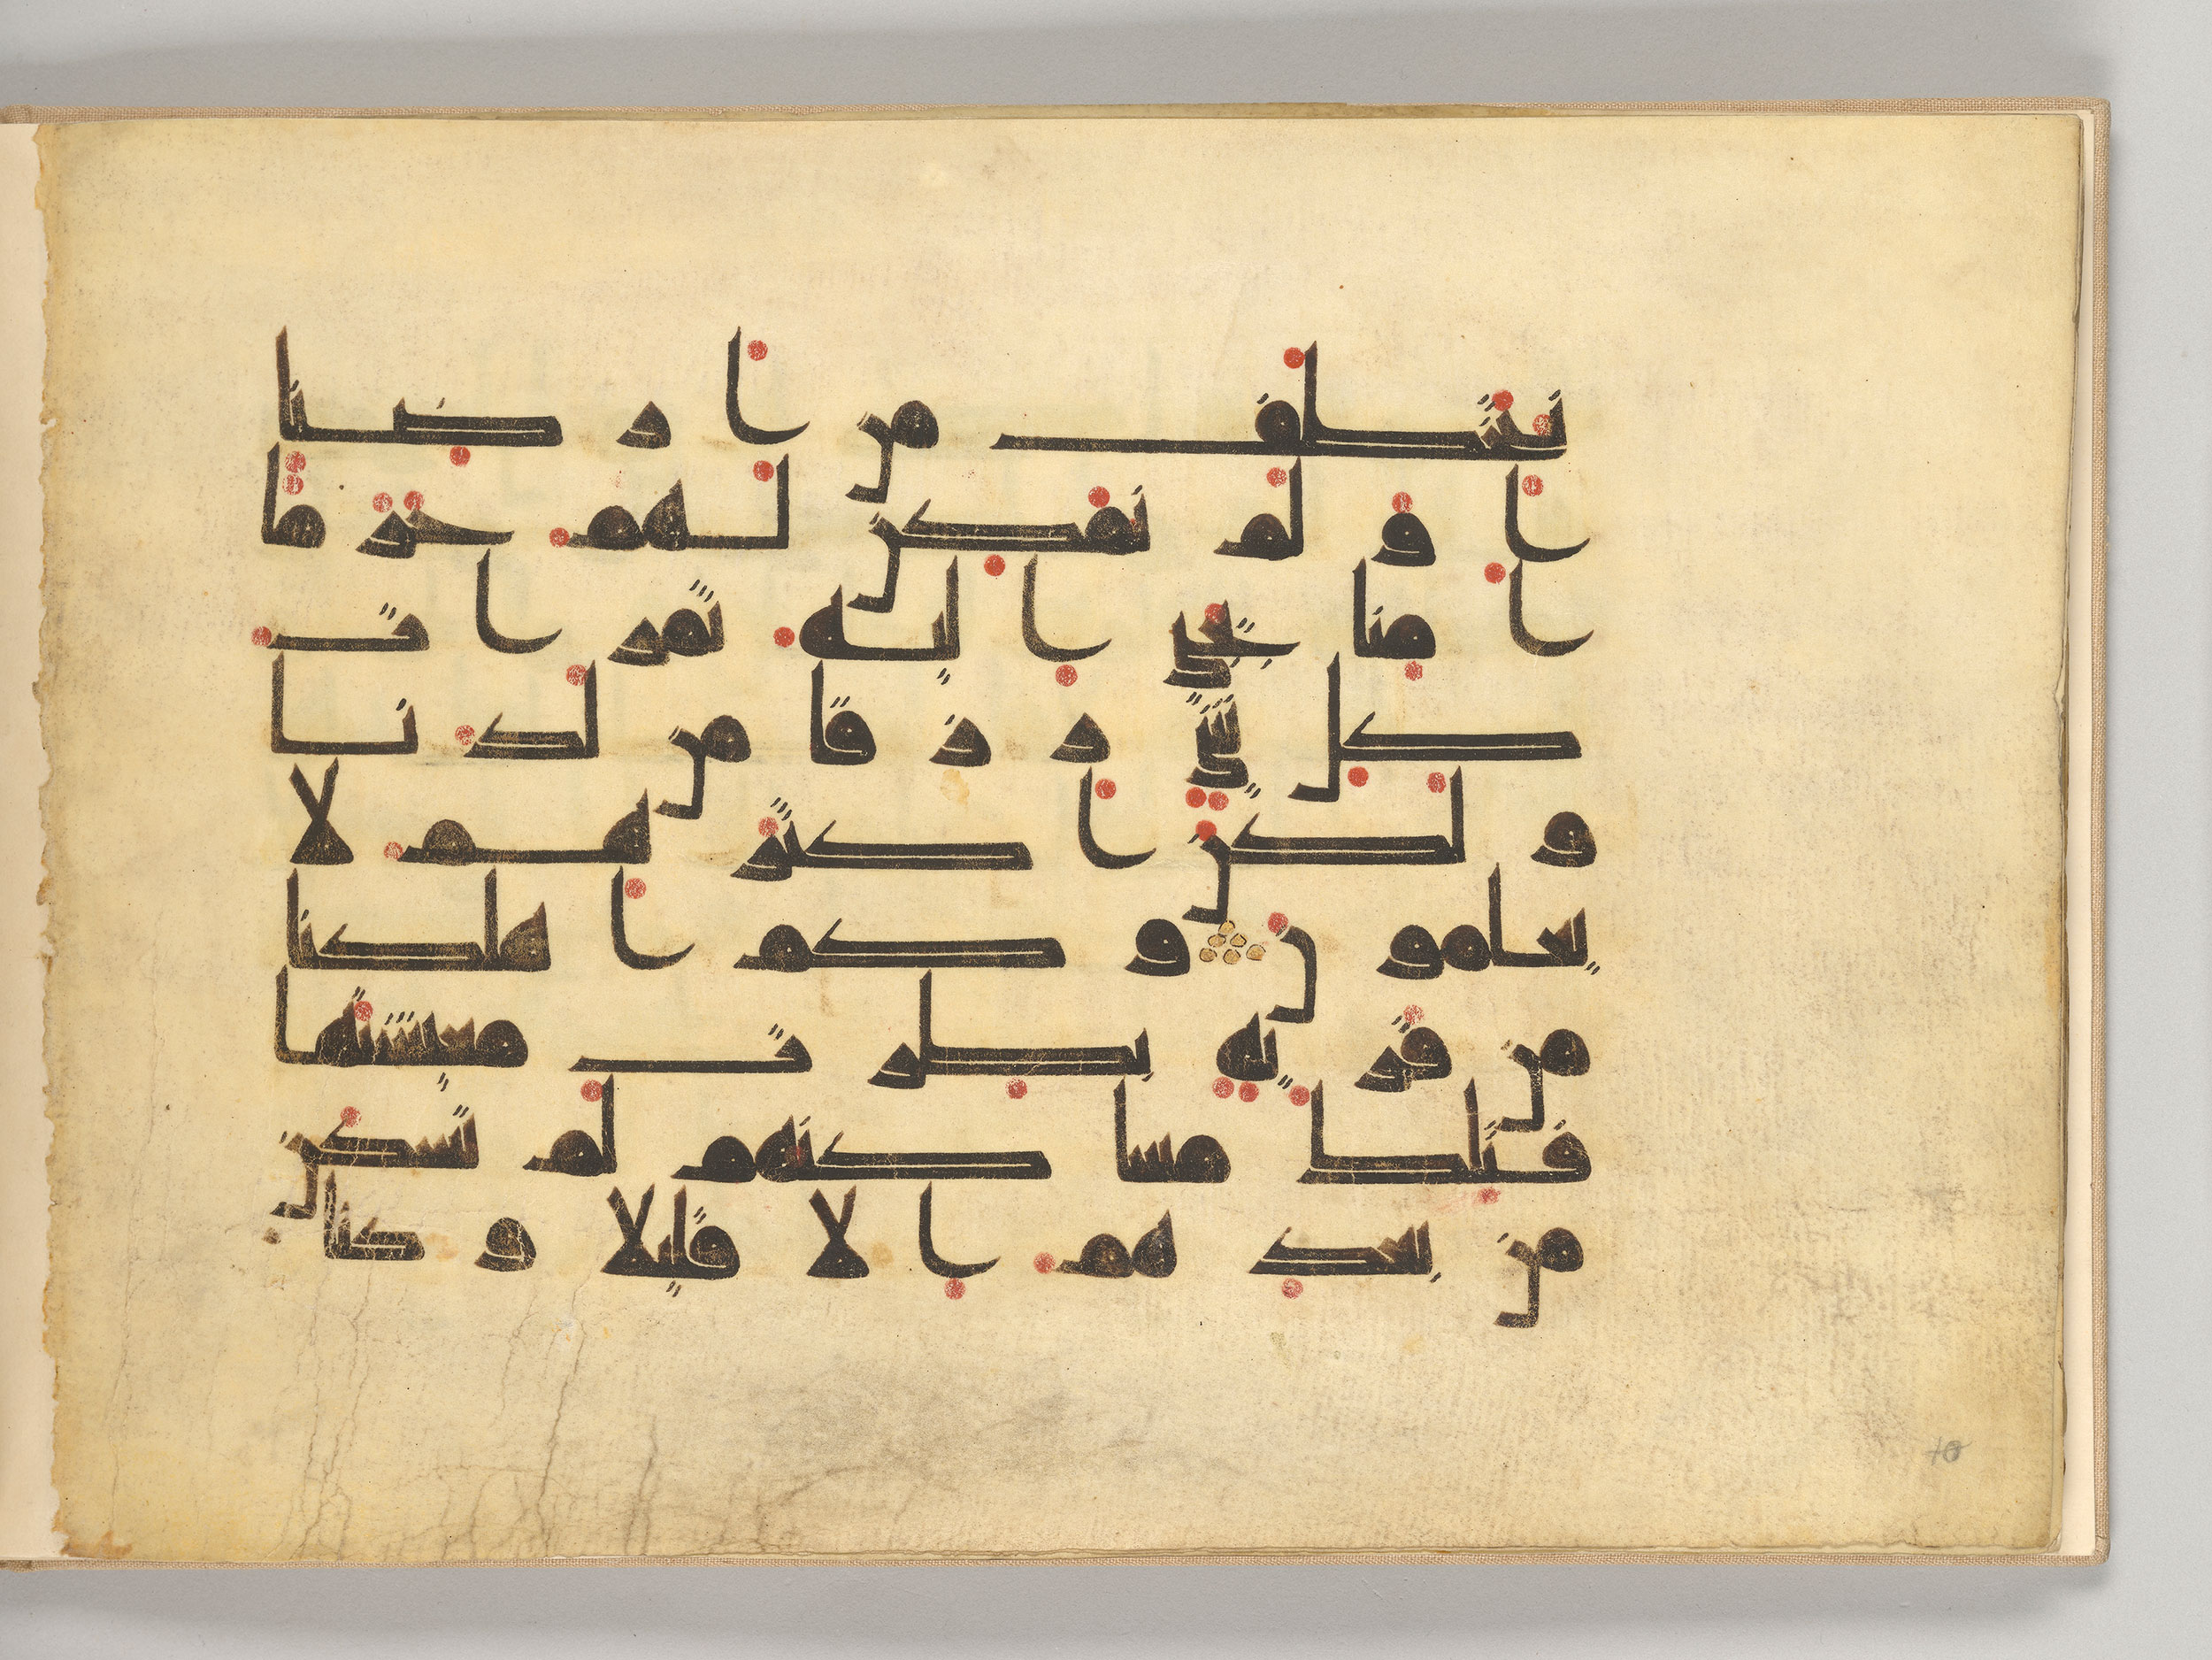 نتخطف من ارضنا
اولم نمكن لهم حرما
امنا يجبى اليه ثمرات
كل شي رزقا من لدنا
ولكن اكثرهم لا
يعلمون وكم اهلكنا
من قرية بطرت معيشتها
فتلك مساكنهم لم تسكن
من بعدهم الا قليلا وكنا
10